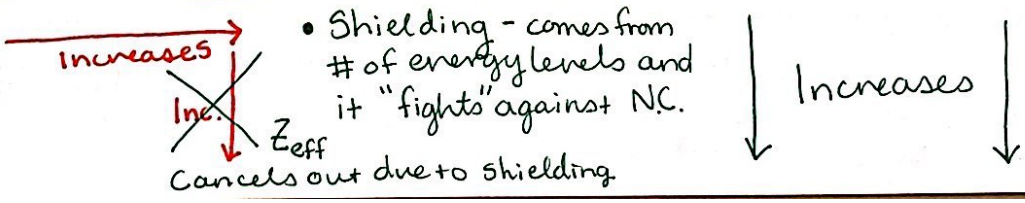 Increases
Inc.
Zeff
Cancels out due to shielding
• Shielding - comes from
# of energy levels and
it "fights" against N.C.
Increases